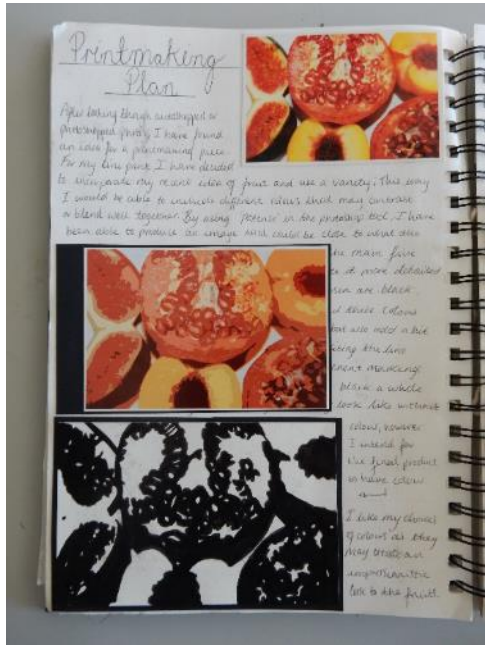 Printmaking
Plan
After looking though autoshopped or
photoshopped photos, I have found
an idea for a printmaking piece.
For my lino print I have decided
to incorporate my recent idea of fruit and use a variety. This way
I would be able to include different views that may contrast
or blend well together. By using 'posterise' in the photoshop tool, I have
been able to produce an image that could be close to what
the main five
it more detailed
are black.
three colours
also add a bit
the lino
marking
black a whole
look like without
colour, however
I intend for
the final product
to have colour
I like my choices
of colours as they
may create an
impressionistic
look to the fruit